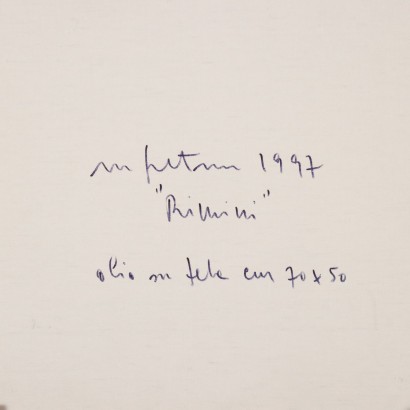 1997
"Rimini"
olio su tela cm 70x50